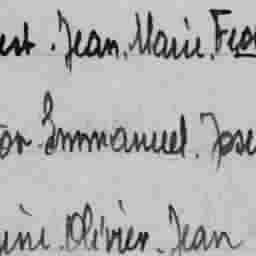 est. Jean. Marie. Fra
or. Emmanuel. Jose
ini. Olivier. Jean